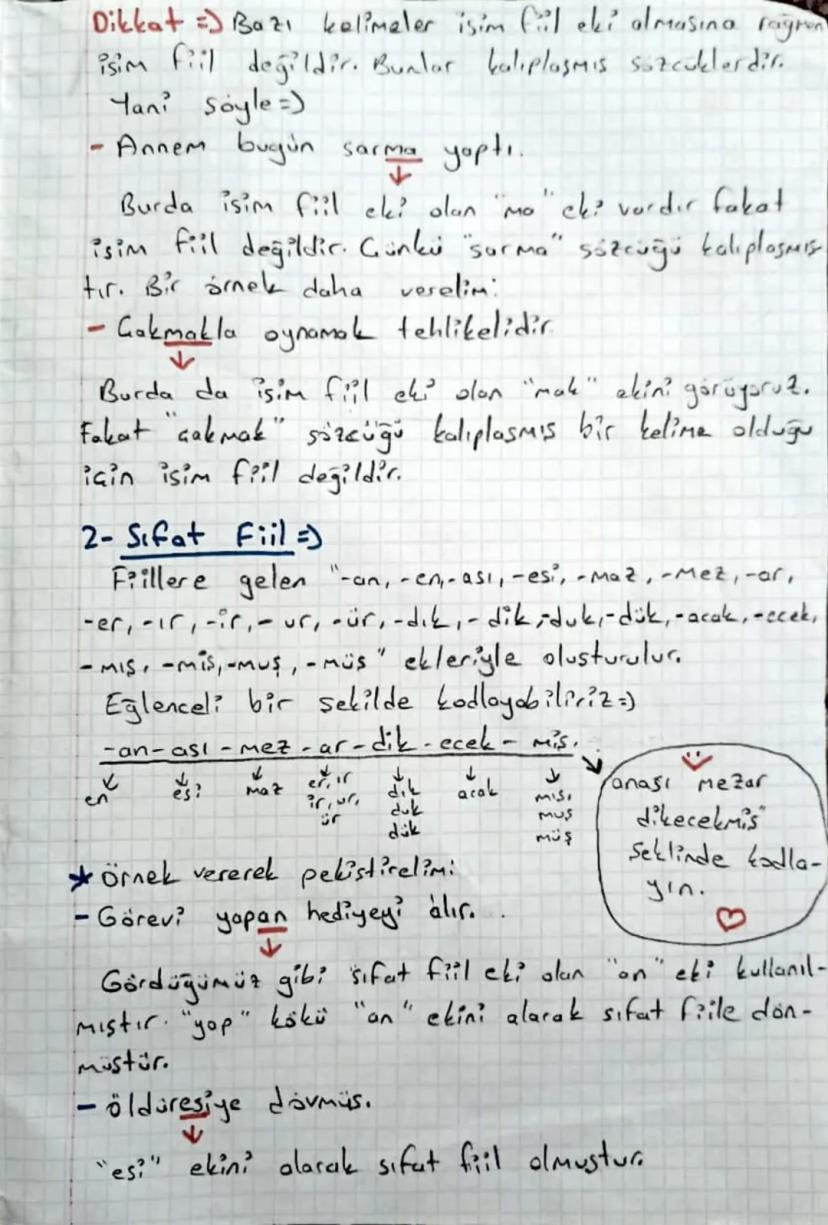 Dikkat => Bazı kelimeler isim fiil eki almasına rağmen
isim fiil değildir. Bunlar kalıplaşmış sözcüklerdir.
Yani şöyle =>
- Annem bugün sarma yaptı.
Burda isim fiil eki olan "ma" eki vardır fakat
isim fiil değildir. Çünkü "sarma" sözcüğü kalıplaşmış-
tır. Bir örnek daha verelim:
- Çakmakla oynamak tehlikelidir
Burda da isim fiil eki olan "mak" ekini görüyoruz.
Fakat "çakmak" sözcüğü kalıplaşmış bir kelime olduğu
için isim fiil değildir.
2- Sıfat Fiil =>
Fiillere gelen "-an, -en, -ası, -esi, -maz, -mez, -ar,
-er, -ır, -ir, -ur, -ür, -dık, -dik, -duk, -dük, -acak, -ecek,
-mış, -miş, -muş, -müş" ekleriyle oluşturulur.
Eğlenceli bir şekilde kodlayabiliriz =>
-an-ası-mez-ar-dik-ecek-miş.
en esi maz er, ır dık acak mış,
ir, ur, duk muş
ür dük müş
anası mezar
dikecekmiş"
şeklinde kodla-
yın.
★ Örnek vererek pekiştirelim:
- Görevi yapan hediyeyi alır.
Gördüğümüz gibi sıfat fiil eki olan "an" eki kullanıl-
mıştır. "yap" kökü "an" ekini alarak sıfat fiile dön-
müştür.
- öldüresiye dövmüş.
"esi" ekini alarak sıfat fiil olmuştur.